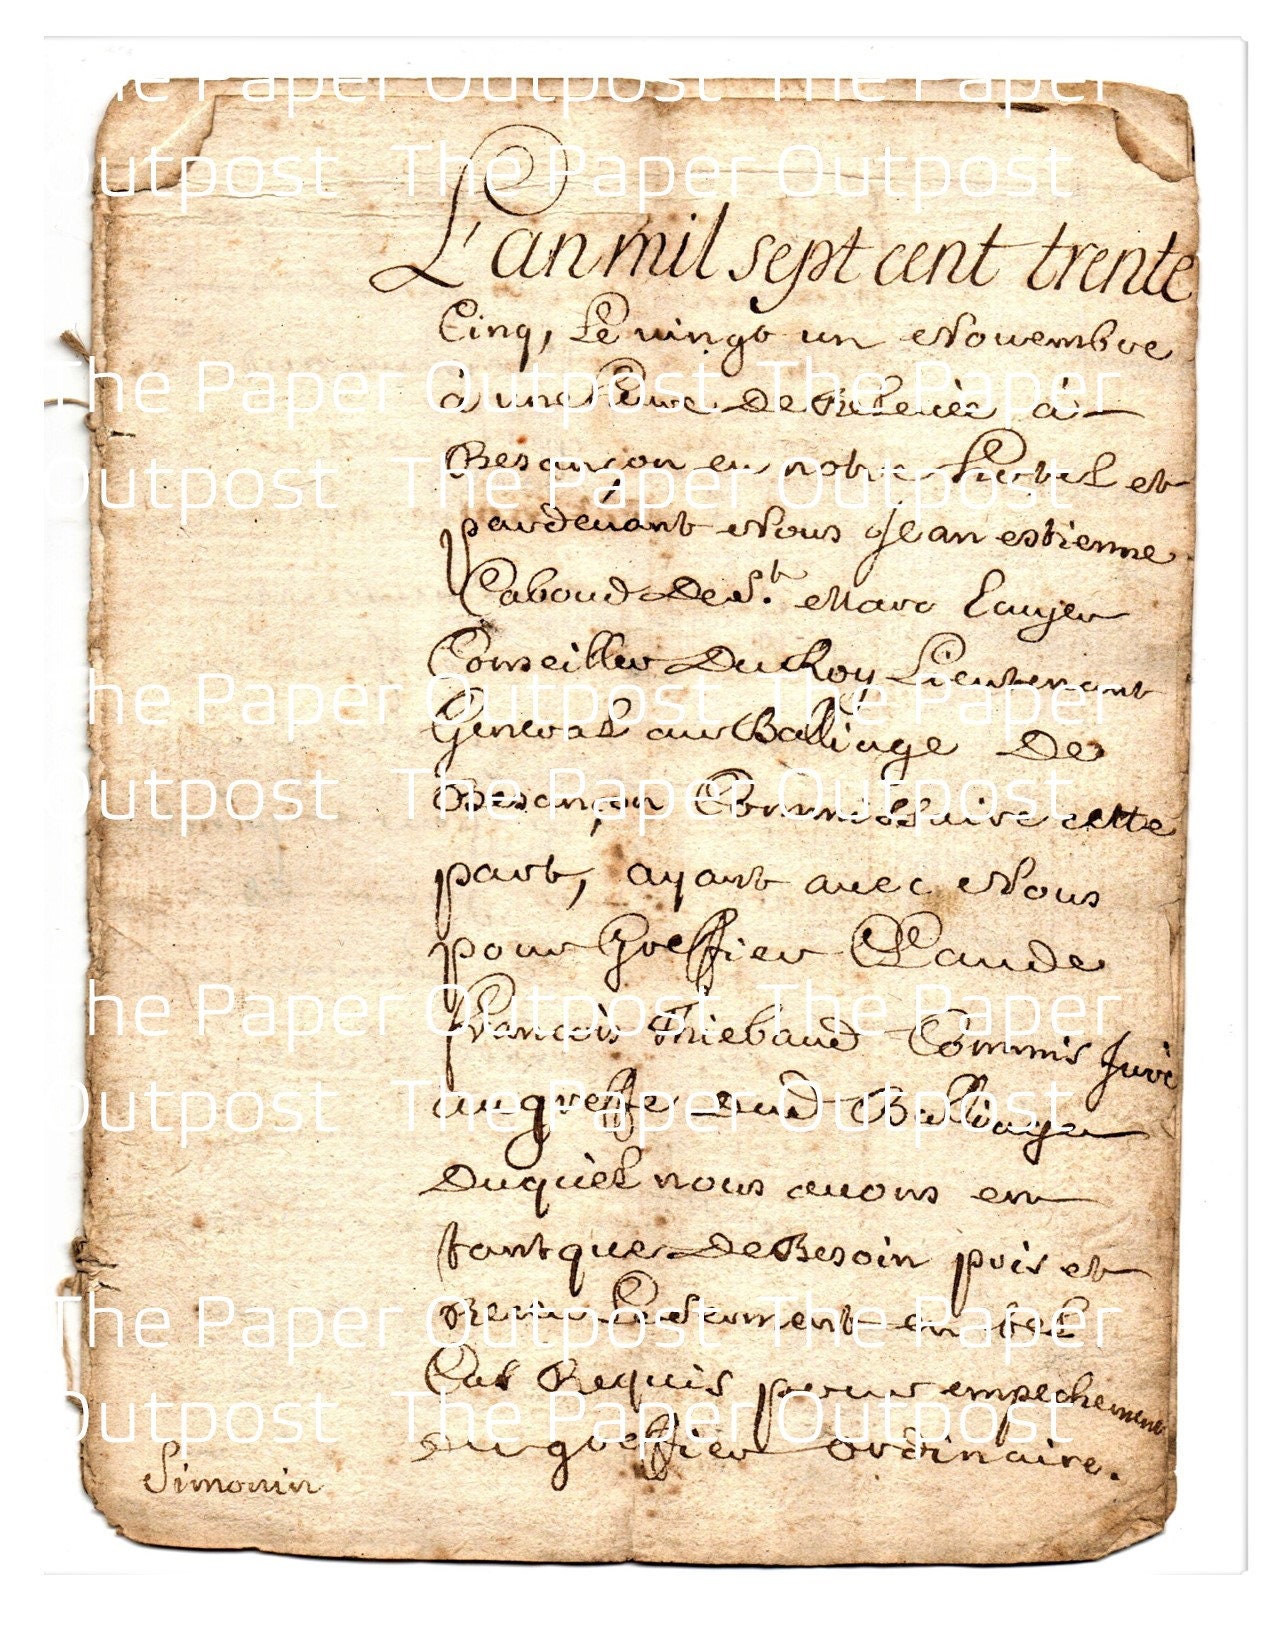 L'an mil sept cent trente
Cinq, Le vingt un Novembre
à une heure De Relevée à
Besançon en notre hostel et
pardevant Nous Jean estienne
Caboud De St. Marc Ecuyer
Conseiller Du Roy Lieutenant
General au Balliage De
Besançon Commissaire cette
part, ayant avec Nous
pour Greffier Claude
François Thiebaud Commis Juré
au greffe dud Balliage
Duquel nous avons en
tant que De Besoin pris et
Receu Le serment en tel
Cas Requis pour empechement
du greffier ordinaire.
Simonin
The Paper Outpost The Paper
Outpost The Paper Outpost
The Paper Outpost The Paper
Outpost The Paper Outpost
The Paper Outpost The Paper
Outpost The Paper Outpost
The Paper Outpost The Paper
Outpost The Paper Outpost
The Paper Outpost The Paper
Outpost The Paper Outpost